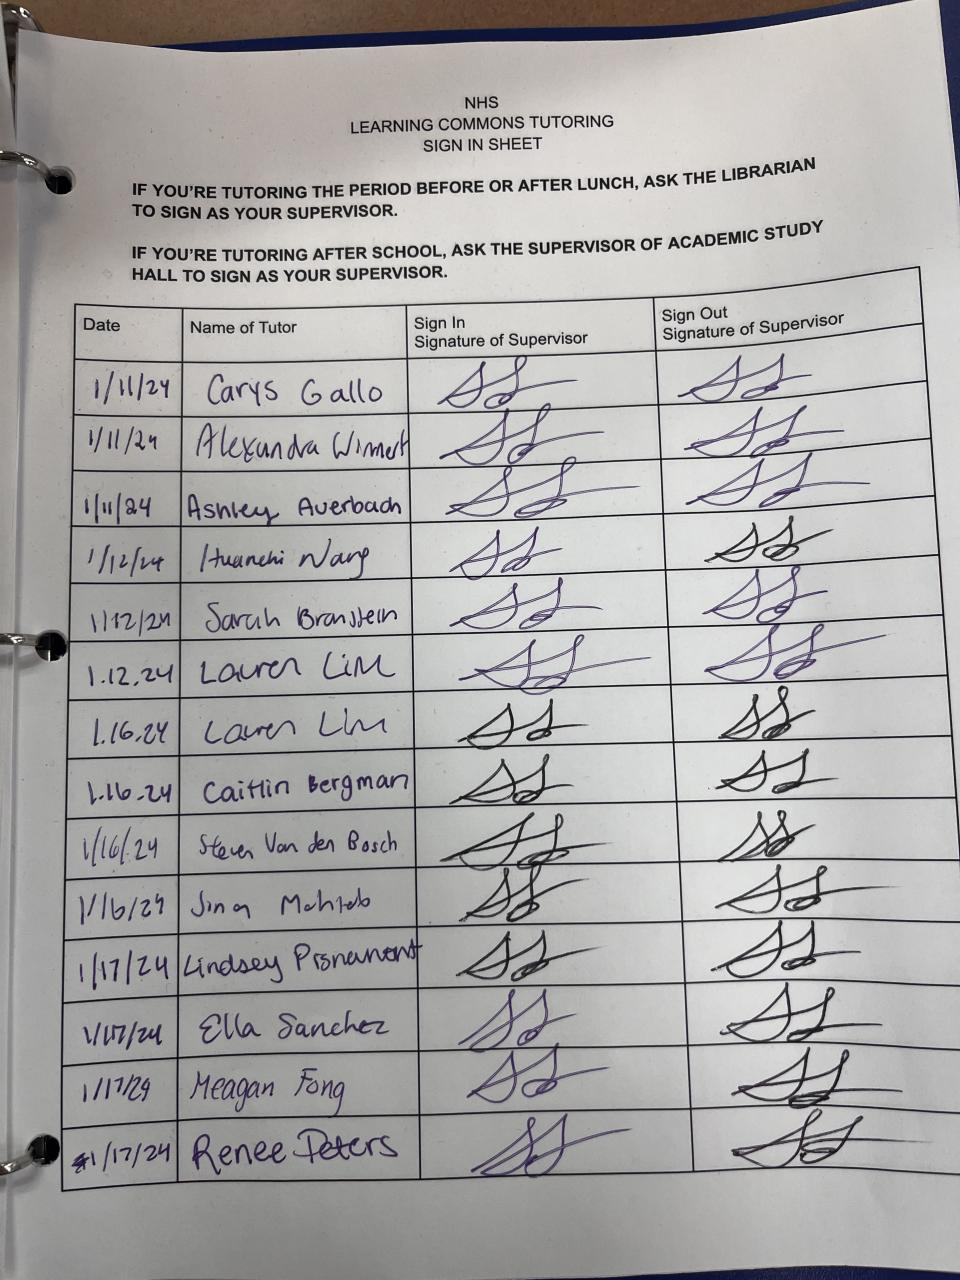 NHS
LEARNING COMMONS TUTORING
SIGN IN SHEET
IF YOU'RE TUTORING THE PERIOD BEFORE OR AFTER LUNCH, ASK THE LIBRARIAN
TO SIGN AS YOUR SUPERVISOR.
IF YOU'RE TUTORING AFTER SCHOOL, ASK THE SUPERVISOR OF ACADEMIC STUDY
HALL TO SIGN AS YOUR SUPERVISOR.
Date Name of Tutor Sign In Sign Out
Signature of Supervisor Signature of Supervisor
1/11/24 Carys Gallo
1/11/24 Alexandra
1/11/24 Ashley Auerbach
1/12/24 Huanchi Wang
1/12/24 Sarah Bronstein
1.12.24 Lauren Lim
1.16.24 Lauren Lim
1.16.24 Caitlin Bergman
1/16/24 Steven Van den Bosch
1/16/24
1/17/24 Lindsey
1/17/24 Ella Sanchez
1/17/24 Meagan Fong
1/17/24 Renee Peters